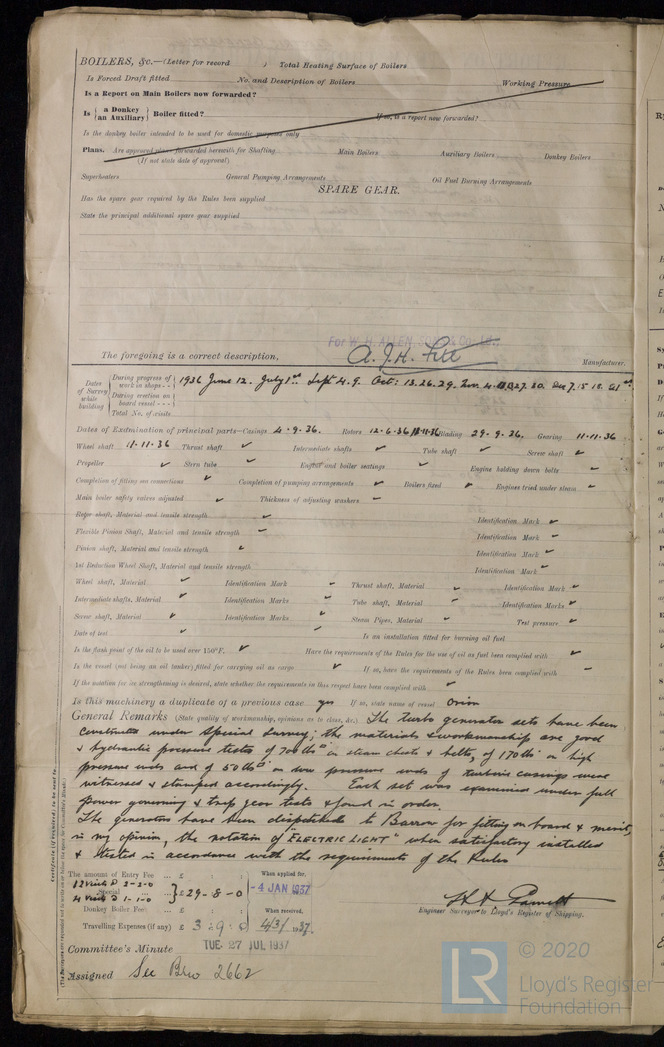 BOILERS, &c.—(Letter for record ) Total Heating Surface of Boilers
Is Forced Draft fitted No. and Description of Boilers Working Pressure
Is a Report on Main Boilers now forwarded?
Is { a Donkey / an Auxiliary } Boiler fitted? If so, is a report now forwarded?
Is the donkey boiler intended to be used for domestic purposes only
Plans. Are approved plans forwarded herewith for Shafting Main Boilers Auxiliary Boilers Donkey Boilers
(If not state date of approval)
Superheaters General Pumping Arrangements Oil Fuel Burning Arrangements
SPARE GEAR.
Has the spare gear required by the Rules been supplied
State the principal additional spare gear supplied
For W. H. ALLEN
The foregoing is a correct description, Manufacturer.
Dates of Survey while building
During progress of work in shops - - 1936 June 12. July 1st Sept 4. 9. Oct: 13. 26. 29. Nov. 4. 27. 30. Dec 7. 15 18. 21st
During erection on board vessel - - -
Total No. of visits
Dates of Examination of principal parts—Casings 4-9-36. Rotors 12-6-36 Blading 29-9-36. Gearing 11-11-36
Wheel shaft 11-11-36 Thrust shaft ✓ Intermediate shafts ✓ Tube shaft ✓ Screw shaft ✓
Propeller ✓ Stern tube ✓ Engine and boiler seatings ✓ Engine holding down bolts ✓
Completion of fitting sea connections ✓ Completion of pumping arrangements ✓ Boilers fixed ✓ Engines tried under steam ✓
Main boiler safety valves adjusted ✓ Thickness of adjusting washers ✓
Rotor shaft, Material and tensile strength ✓ Identification Mark ✓
Flexible Pinion Shaft, Material and tensile strength ✓ Identification Mark ✓
Pinion shaft, Material and tensile strength ✓ Identification Mark ✓
1st Reduction Wheel Shaft, Material and tensile strength Identification Mark ✓
Wheel shaft, Material ✓ Identification Mark ✓ Thrust shaft, Material ✓ Identification Mark ✓
Intermediate shafts, Material ✓ Identification Marks ✓ Tube shaft, Material ✓ Identification Marks ✓
Screw shaft, Material ✓ Identification Marks ✓ Steam Pipes, Material ✓ Test pressure ✓
Date of test ✓ Is an installation fitted for burning oil fuel
Is the flash point of the oil to be used over 150°F. ✓ Have the requirements of the Rules for the use of oil as fuel been complied with ✓
Is the vessel (not being an oil tanker) fitted for carrying oil as cargo ✓ If so, have the requirements of the Rules been complied with
If the notation for ice strengthening is desired, state whether the requirements in this respect have been complied with ✓
Is this machinery a duplicate of a previous case yes If so, state name of vessel Orion
General Remarks (State quality of workmanship, opinions as to class, &c.) The turbo generator sets have been
constructed under Special Survey; the materials & workmanship are good
& hydraulic pressure tests of 700 lbs□" on steam chests & belts, of 170 lbs□" on high
pressure ends and of 50 lbs□" on low pressure ends of turbine casings were
witnessed & stamped accordingly. Each set was examined under full
power governing & trip gear tests & found in order.
The generators have been dispatched to Barrow for fitting on board & merit,
in my opinion, the notation of "ELECTRIC LIGHT" when satisfactorily installed
& tested in accordance with the requirements of the Rules
Certificate (if required) to be sent to
The amount of Entry Fee ... £ : : When applied for.
12 visits @ 2-2-0
Special ... } £29-8-0 -4 JAN 1937
4 visits @ 1-1-0
Donkey Boiler Fee ... £ : : When received.
Travelling Expenses (if any) £ 3 : 9 : 0 4/3/1937.
Engineer Surveyor to Lloyd's Register of Shipping.
Committee's Minute TUE 27 JUL 1937
Assigned See Brw 2662
LR © 2020
Lloyd's Register
Foundation